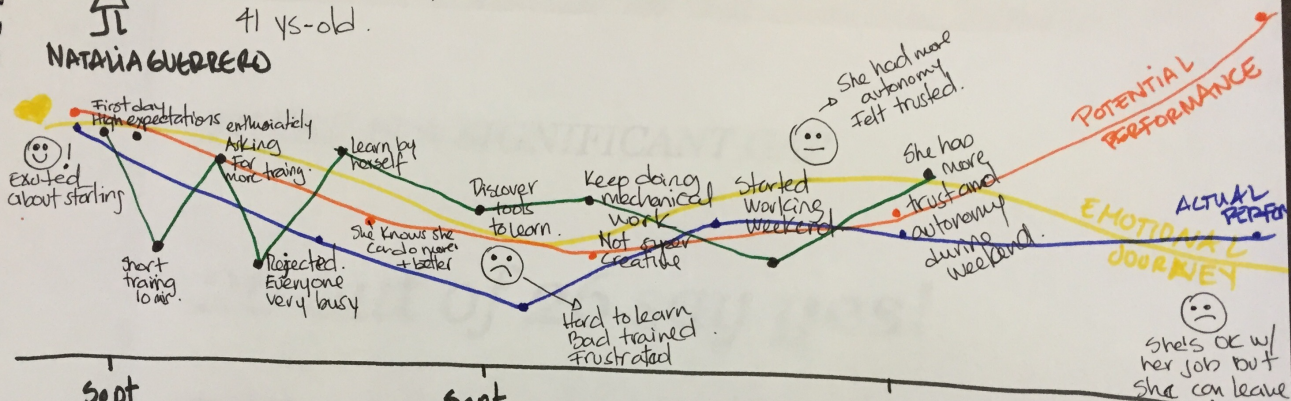 41 ys-old.
NATALIA GUERRERO
First day
High expectations
Excited
about starting
!
Short
traing
10 min.
enthusiately
Asking
For
more traing.
Rejected.
Everyone
very busy
Learn by
herself
She knows she
can do more
+ better
Discover
tools
to learn.
Hard to learn
Bad trained
Frustrated
Keep doing
mechanical
work
Not super
creative
Started
working
weekend
She had more
autonomy
Felt trusted.
She has
more
trust and
autonomy
during
weekend.
POTENTIAL
PERFORMANCE
ACTUAL
PERFOM
EMOTIONAL
JOURNEY
She's OK w/
her job but
she can leave
Sept
Sept